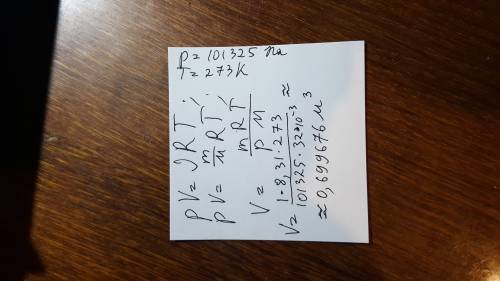 P = 101325 Па
T = 273 К
PV = νRT;
PV = m/μ RT;
V = mRT/Pμ
V = 1·8,31·273/101325·32·10⁻³ ≈
≈ 0,699676 м³